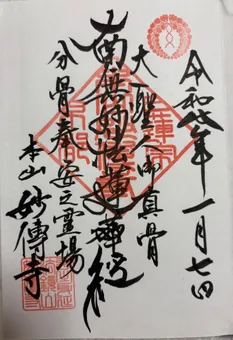 令和八年一月七日
大聖人御真骨
南無妙法蓮華経
分骨奉安之霊場
本山妙傳寺